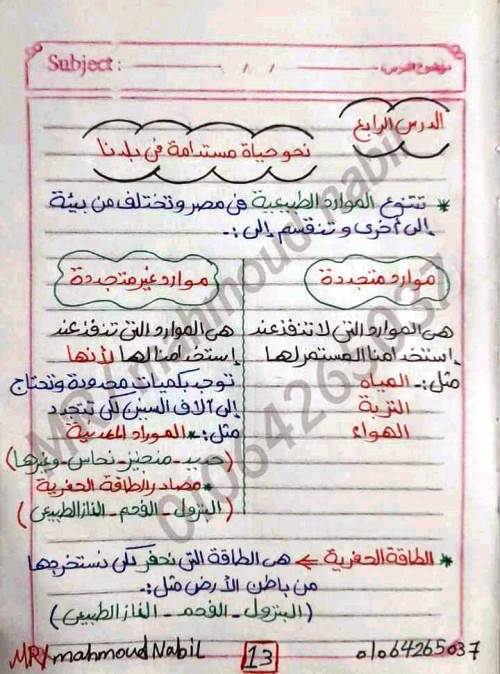 Subject:
موضوع الدرس:
/ /
الدرس الرابع
نحو حياة مستدامة في بلدنا
* تتنوع الموارد الطبيعية في مصر وتختلف من بيئة
إلى أخرى وتنقسم إلى :-
موارد متجددة
هي الموارد التي لا تنفذ عند
استخدامنا المستمر لها
مثل :- المياه
التربة
الهواء
موارد غير متجددة
هي الموارد التي تنفذ عند
إستخدامنا لها لأنها
توجد بكميات محدودة وتحتاج
إلى آلاف السنين لكي تتجدد
مثل :* الموراد المعدنية
(حديد - منجنيز - نحاس - وغيرها)
* مصادر الطاقة الحفرية
(البترول - الفحم - الغاز الطبيعي)
* الطاقة الحفرية ← هي الطاقة التي نحفر لكي نستخرجها
من باطن الأرض مثل :-
(البترول - الفحم - الغاز الطبيعي)
MR/mahmoud Nabil
13
01064265037
MR/mahmoud nabil
01064265037